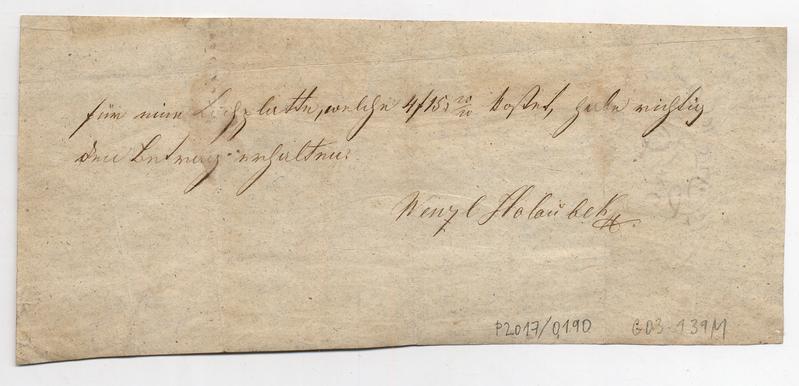 für eine Tischplatte, welche 4f 15x kostet, habe richtig
den Betrag erhalten.
Wenzl Holaubek
P2017/0190 G03-139M